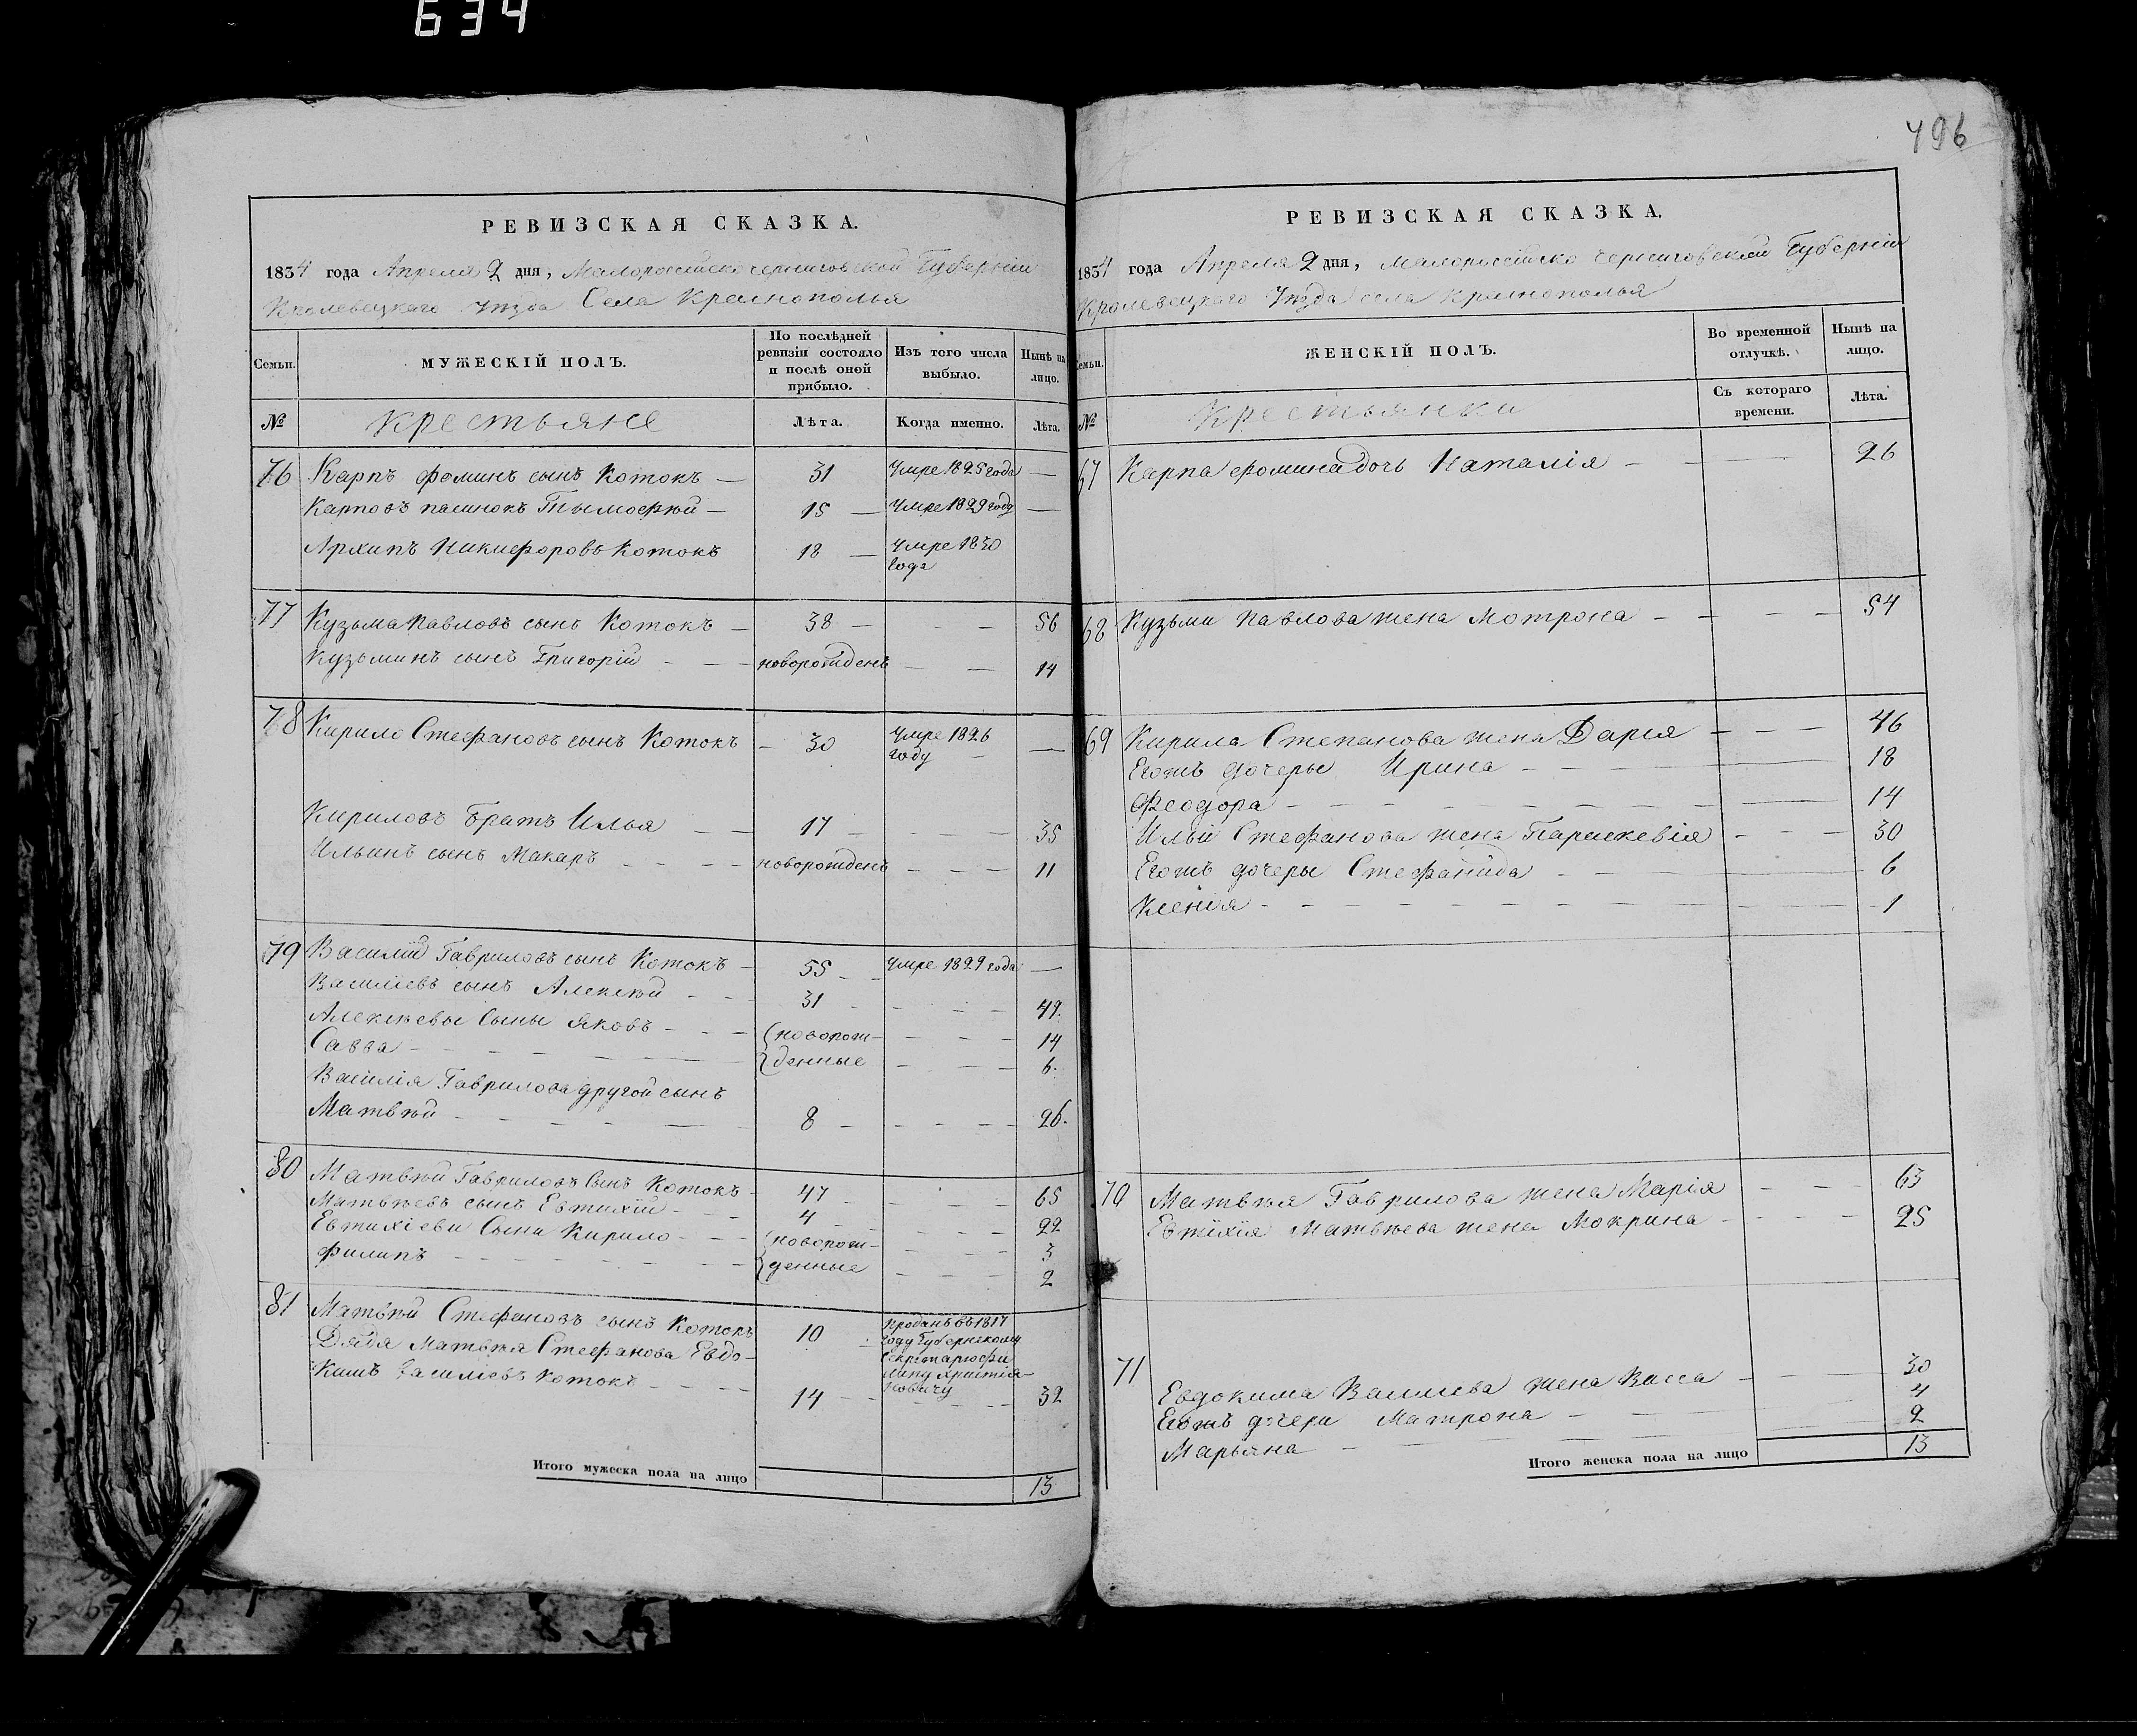 634
РЕВИЗСКАЯ СКАЗКА.
1834 года Апреля 2 дня, Малороссійско черниговской Губерніи
Кролевецкаго Уѣзда Села Краснополья
Семьи.
МУЖЕСКІЙ ПОЛЪ.
По послѣдней ревизіи состояло и послѣ оной прибыло.
Изъ того числа выбыло.
Нынѣ на лицо.
№
крестьяне
Лѣта.
Когда именно.
Лѣта.
76 Карпъ фоминъ сынъ Котокъ — 31 Умре 1825 года —
Карповъ пасинокъ Тымофѣй — 15 — Умре 1829 году —
Архипъ Никифоровъ Котокъ 18 — Умре 1830
года
77 Кузьма Павловъ сынъ Котокъ — 38 — — — 56
Кузьминъ сынъ Григорій — — новорожденъ — — 14
78 Кирило Стефановъ сынъ Котокъ — 30 Умре 1826
году —
Кириловъ братъ Илья — — 17 — — — 35
Ильинъ сынъ Макаръ — — — новорожденъ — — — 11
79 Василій Гавриловъ сынъ Котокъ — 55 — Умре 1829 года —
Василіевъ сынъ Алексѣй — — 31 — — — 49.
Алексѣевы Сыны Яковъ — — — (новорож- — — — 14
Савва — — — — — — денные — — — 6.
Василія Гаврилова другой сынъ
Матвѣй — — — — — 8 — — — — 26.
80 Матвѣй Гавриловъ Сынъ Котокъ — 47 — — — 65
Матвѣевъ сынъ Евтихій — — — 4 — — — 22
Евтихіеви Сыни Кирило — — — (новорож- — — — 3
филипъ — — — — — — денные — — — 2
81 Матвѣй Стефановъ сынъ Котокъ 10 — Проданъ въ 1817
году Губернскому
Секретарю Фи
липу Христія-
новичу
Дядя Матвѣя Стефанова Евдо-
кимъ Василіевъ Котокъ — — — 14 — — — — 32
Итого мужеска пола на лицо 13
496
РЕВИЗСКАЯ СКАЗКА.
1834 года Апреля 2 дня, малороссійско черниговской Губерніи
Кролевецкаго Уѣзда села краснополья
Семьи.
ЖЕНСКІЙ ПОЛЪ.
Во временной отлучкѣ.
Нынѣ на лицо.
№
Крестьянки
Съ котораго времени.
Лѣта.
67 Карпа фомина дочь Наталія — — — 26
68 Кузьми Павлова жена Мотрона — — — — 54
69 Кирила Степанова жена Дарія — — — 46
Егожъ дочеры Ирина — — — 18
Феодора — — — — — — — — 14
Ильи Стефанова жена Параскевія — — — 30
Егожъ дочеры Стефанида — — — 6
Ксенія — — — — — — — — — 1
70 Матвѣя Гаврилова жена Марія — — — 63
Евтіхія Матвѣева жена Мокрина — — — — 25
71 Евдокима Василіева жена Васса — — — 30
Егожъ дочери Матрона — — — 4
Марьяна — — — — — 2
Итого женска пола на лицо 13